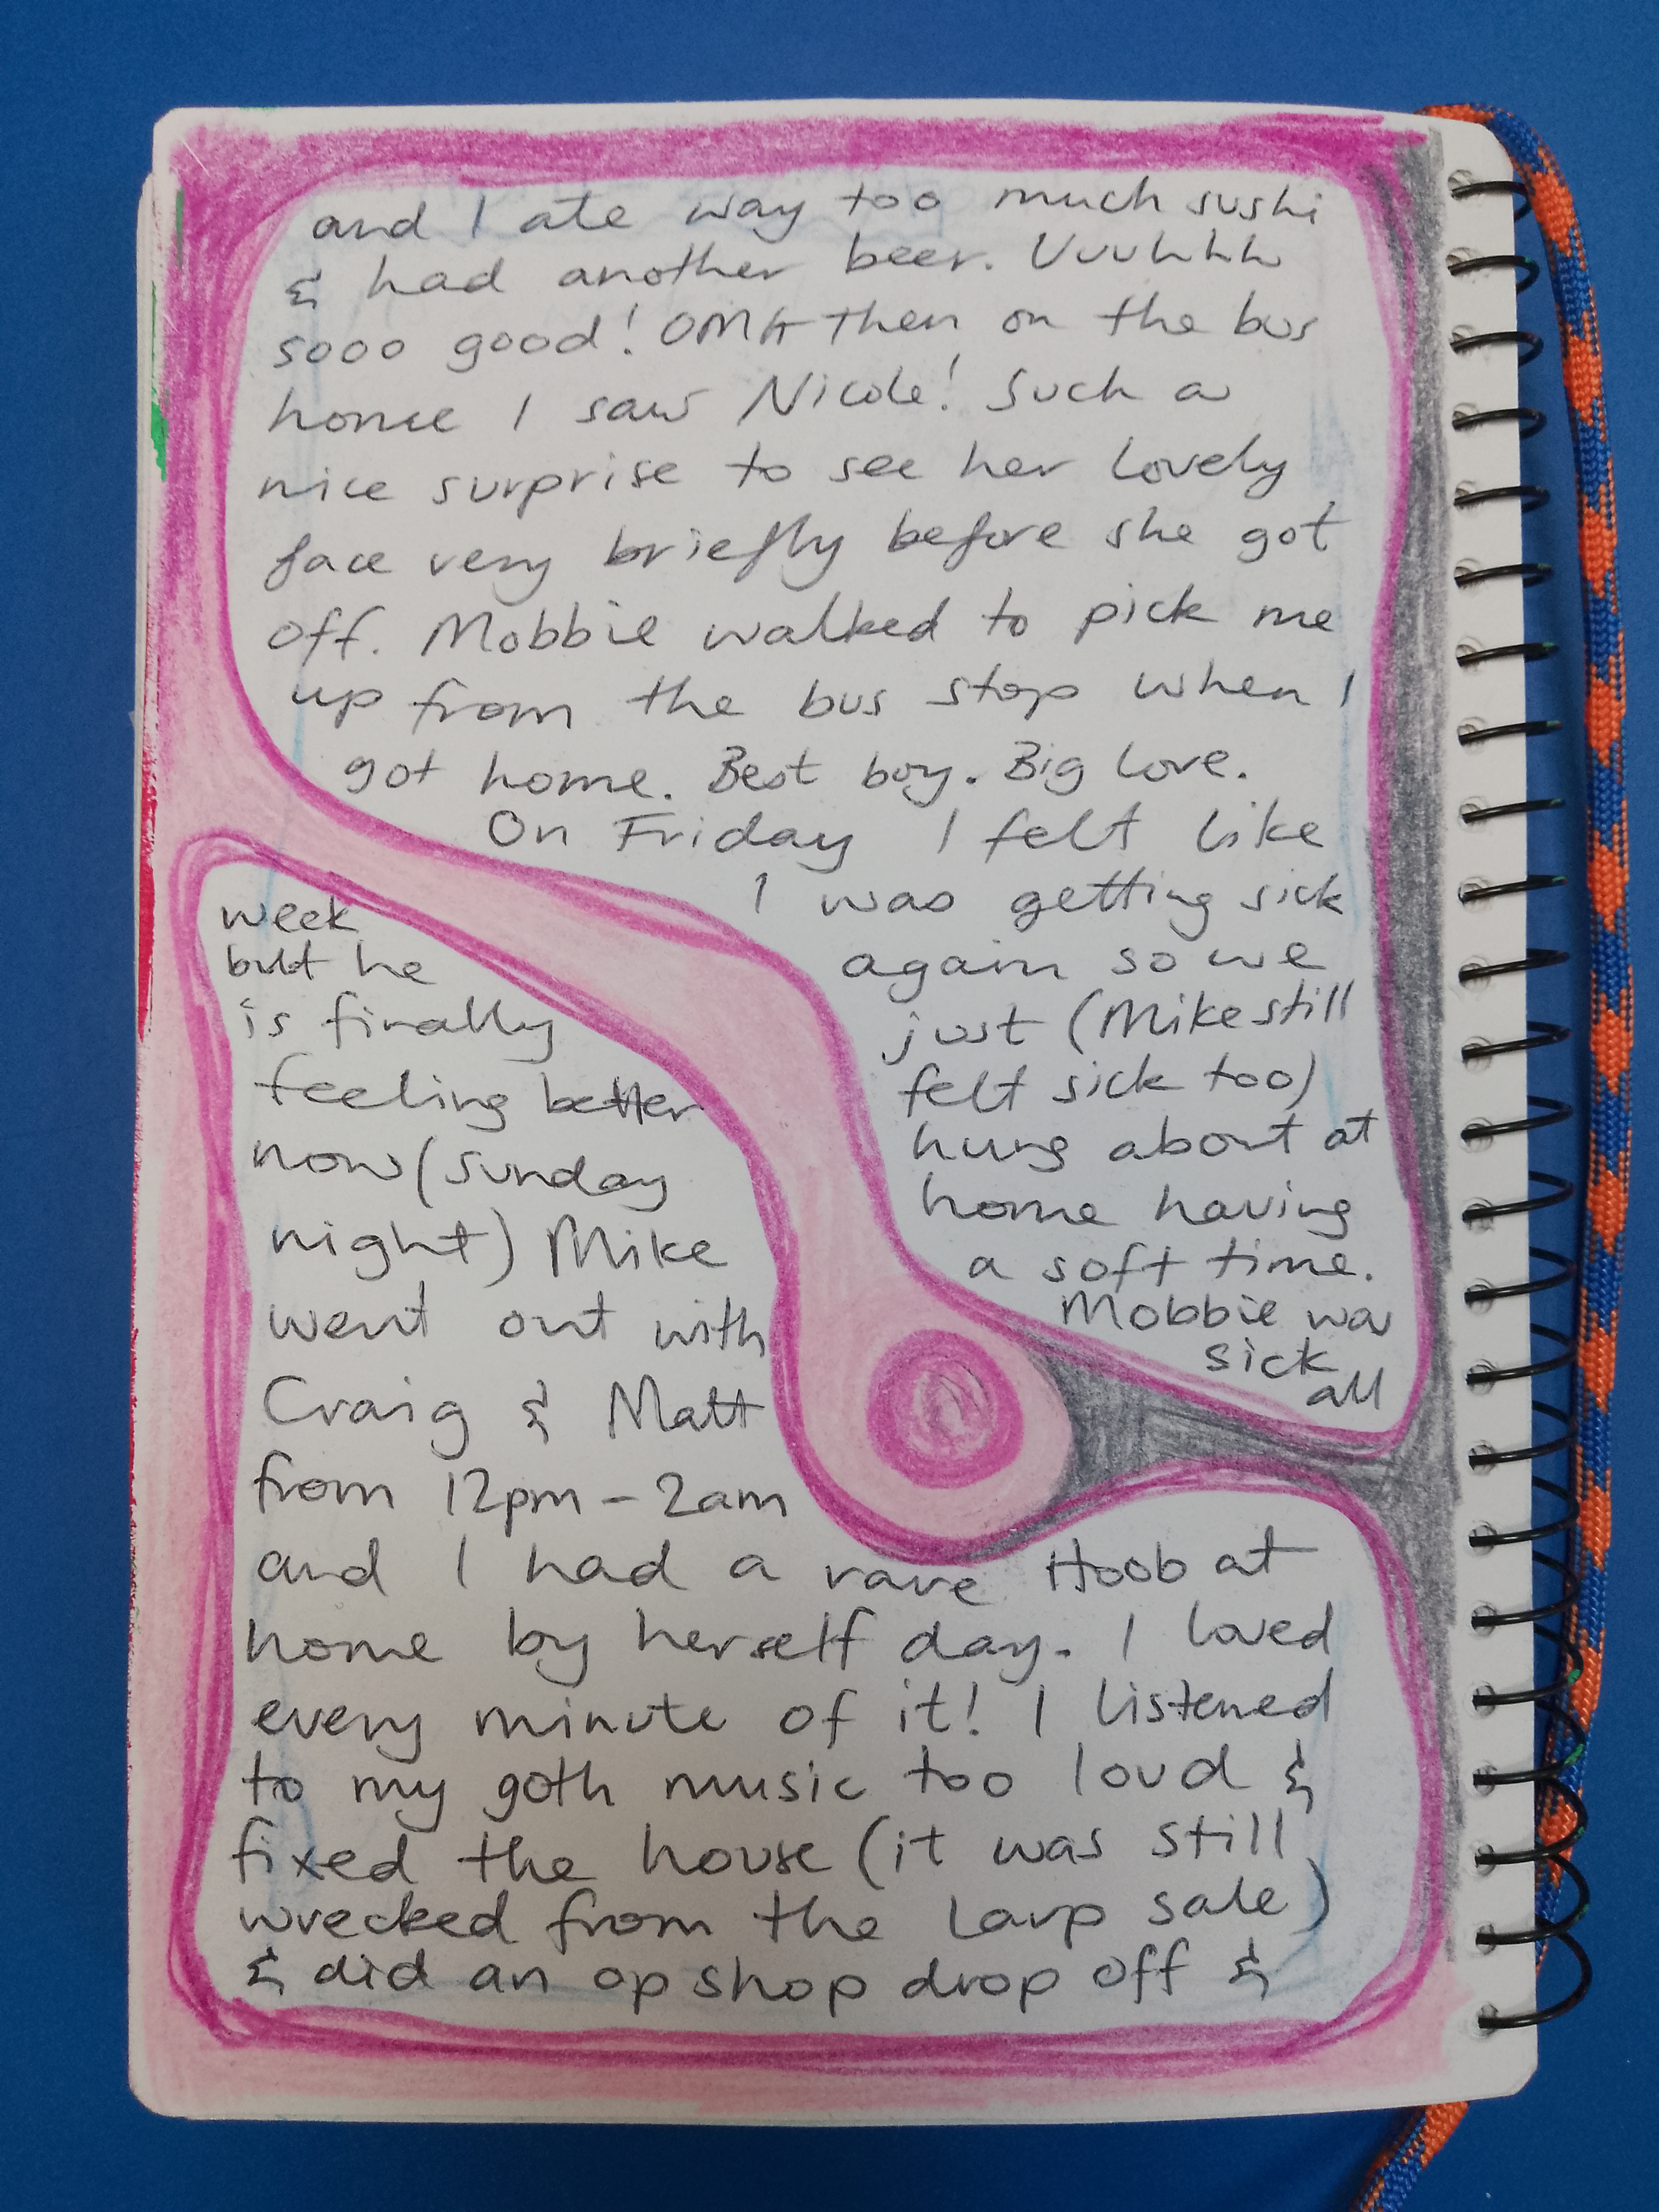 and I ate way too much sushi
& had another beer. Uuuhhh
sooo good! OMG then on the bus
home I saw Nicole! Such a
nice surprise to see her lovely
face very briefly before she got
off. Mobbie walked to pick me
up from the bus stop when I
got home. Best boy. Big love.
On Friday I felt like
I was getting sick
again so we
just (Mike still
felt sick too)
hung about at
home having
a soft time.
Mobbie was
sick
all
week
but he
is finally
feeling better
now (Sunday
night) Mike
went out with
Craig & Matt
from 12pm - 2am
and I had a rare Hoob at
home by herself day. I loved
every minute of it! I listened
to my goth music too loud &
fixed the house (it was still
wrecked from the Larp sale)
& did an op shop drop off &